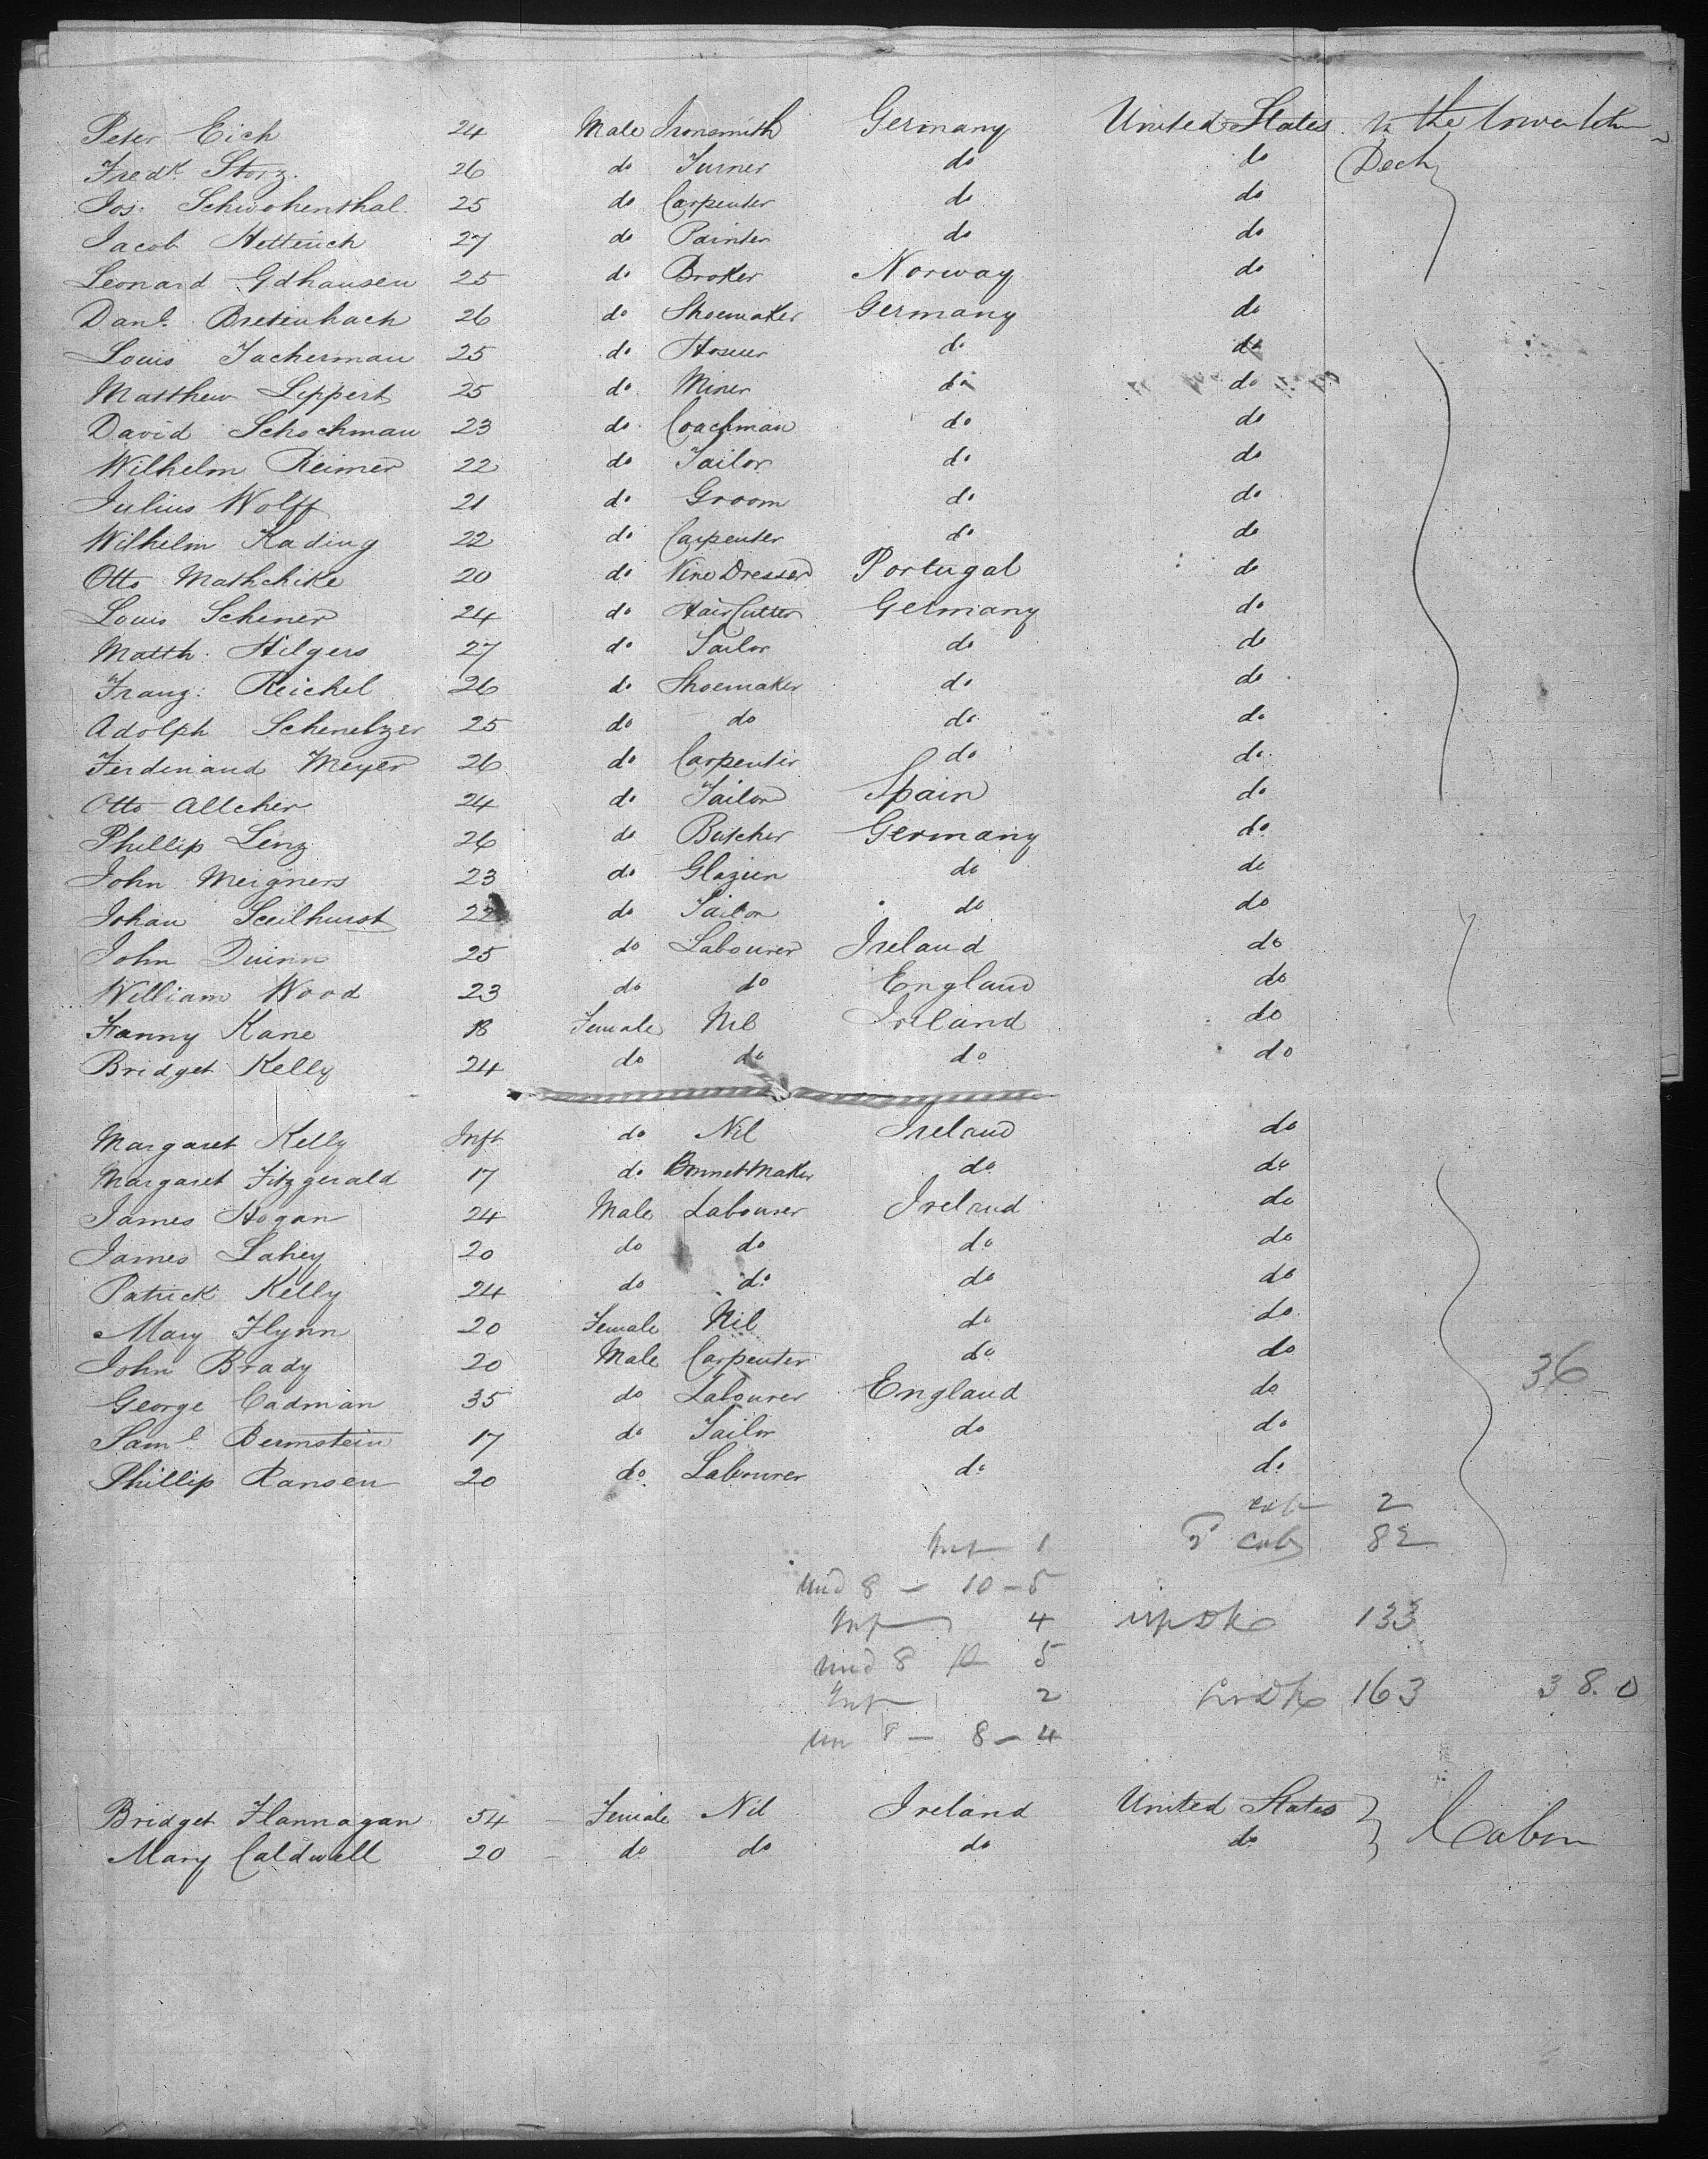 Peter Eich 24 Male Ironsmith Germany United States In the lower between
Fredk. Storz. 26 do Turner do do Deck
Jos: Schwohenthal. 25 do Carpenter do do
Jacob Hetterich 27 do Painter do do
Leonard Gdhausen 25 do Broker Norway do
Danl. Breteinbach 26 do Shoemaker Germany do
Louis Jacherman 25 do do do
Matthew Lippert 25 do Miner do do
David Schochman 23 do Coachman do do
Wilhelm Reimer 22 do Tailor do do
Julius Wolff 21 do Groom do do
Wilhelm Kading 22 do Carpenter do do
Otto Mathchike 20 do Vine Dresser Portugal do
Louis Schener 24 do Hair Cutter Germany do
Matth. Hilgers 27 do Tailor do do
Franz: Reichel 26 do Shoemaker do do
Adolph Schenelzer 25 do do do do
Ferdinand Meyer 26 do Carpenter do do
Otto Allcher 24 do Tailor Spain do
Phillip Linz 26 do Butcher Germany do
John Meigners 23 do Glazier do do
Johan Sceilhurst 22 do Tailor do do
John Quinn 25 do Labourer Ireland do
William Wood 23 do do England do
Fanny Kane 18 Female Nil Ireland do
Bridget Kelly 24 do do do do
Margaret Kelly Inft do Nil Ireland do
Margaret Fitzgerald 17 do Bonnet Maker do do
James Hogan 24 Male Labourer Ireland do
James Lahey 20 do do do do
Patrick Kelly 24 do do do do
Mary Flynn 20 Female Nil do do
John Brady 20 Male Carpenter do do 36
George Cadman 35 do Labourer England do
Saml. Bernstein 17 do Tailor do do
Phillip Ransen 20 do Labourer do do
cab 2
Inf 1 2d cab 82
und 8 — 10 — 5
Inf 4 up Dk 133
und 8 10 5
Inf 2 Lr Dk 163 380
un 8 — 8 — 4
Bridget Flannagan 54 Female Nil Ireland United States } Cabin
Mary Caldwell 20 do do do do